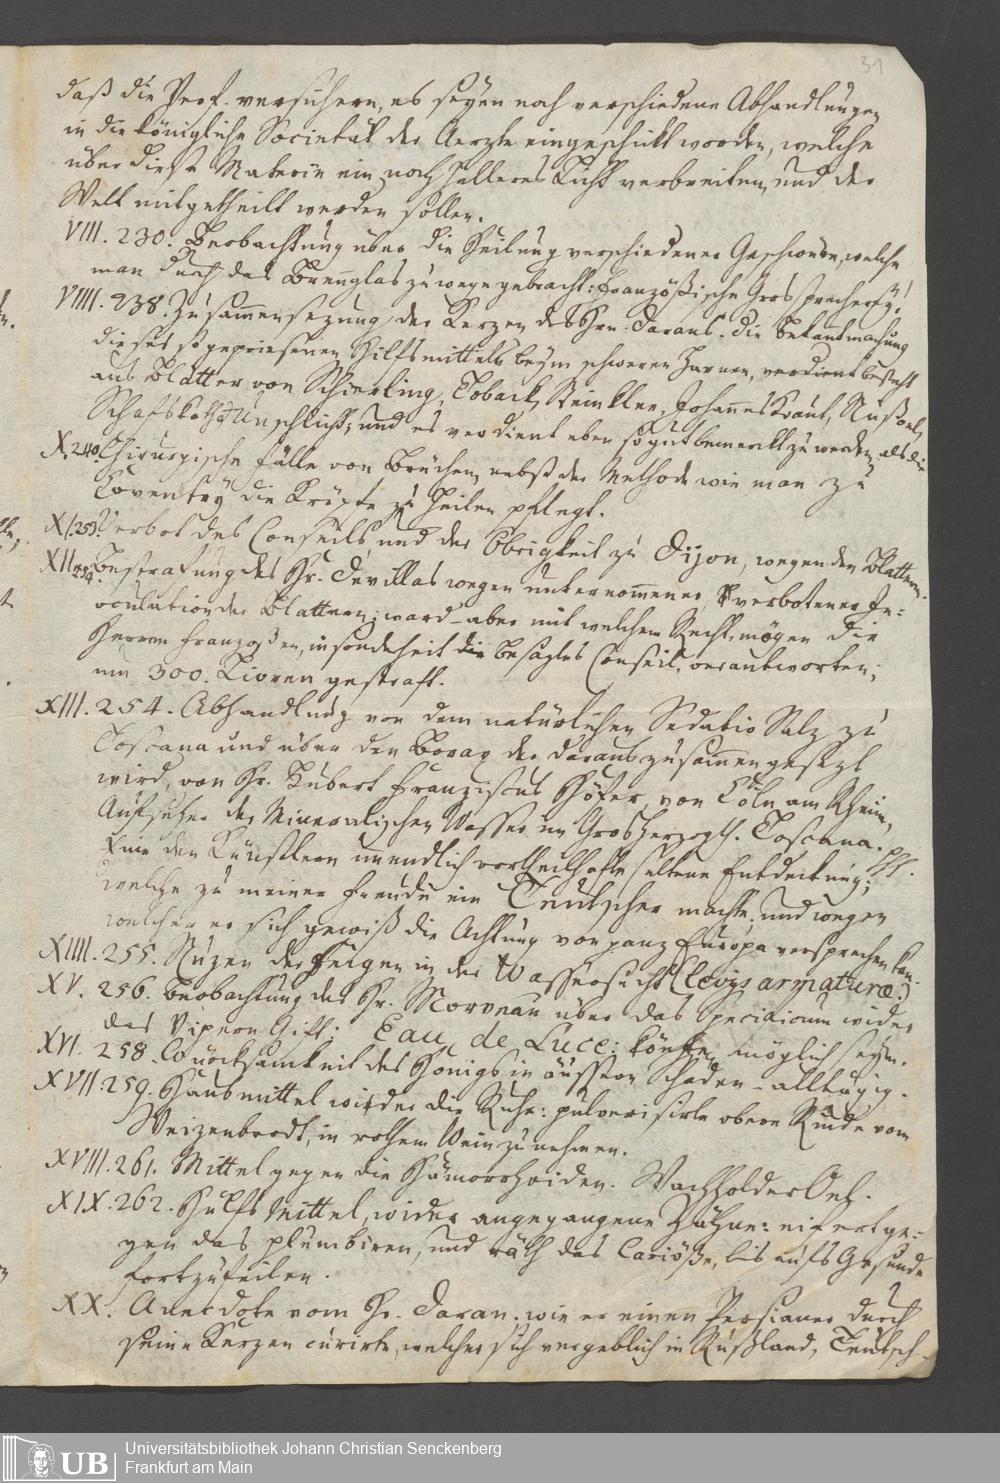 31
daß die Prof. versichern, es seyen noch verschiedene Abhandlungen
in die königliche Societät der Aerzte eingeschikt worden, welche
über diese Materie ein noch helleres Licht verbreiten, und der
Welt mitgetheilt werden sollen.
VIII. 230. Beobachtung über die Heilung verschiedener Geschwüre, welche
man durch das Brennglas zuwege gebracht: französische Grossprecherey!
VIIII. 238. Zusammensezung der Kerzen des Hrn. Darans. die Bekantmachung
dieses so gepriesenen Hilfsmittels beym schweren Harnen, verdient besteht
aus Blätter von Schierling, Toback, Steinklee, Johannes Kraut, Nußoel,
Schafskoth, Unschlicht; und es verdient eben so gut bemerkt zu werden, als die
X. 240. Chirurgische Fälle von Brüchen, nebst der Methode wie man zu
Coventry die Kröpfe zu heilen pflegt.
XI. 253. Verbot des Conseils und der Obrigkeit zu Dijon, wegen den Blattern.
XII. 254. Bestrafung des Hr. Devillas wegen unternommener, verbotener In=
oculation der Blattern; ward – aber mit welchem Recht, mögen die
Herren Franzosen, insonderheit die besagtes Conseil, verantworten;
um 300. Livren gestraft.
XIII. 254. Abhandlung von dem natürlichen Sedativ Salz zu
Toscana und über den Borax der daraus zusammengesezt
wird, von Hr. Hubert Franziscus Höfer, von Cöln am Rhein,
Aufseher der Mineralischen Wasser im Grosherzogth. Toscana.
Eine den Künstlern unendlich vortheilhafte seltene Entdeckung;
welche zu meiner Freude ein Teutscher machte, und wegen
welcher er sich gewiß die Achtung von ganz Europa versprechen kan.
XIIII. 255. Nuzen der Feigen in der Wassersucht (levis armaturæ.)
XV. 256. Beobachtung des Hr. Morveau über das Specificum wider
das Vipern Gift: Eau de Luce: könte möglich seyn.
XVI. 258. Würcksamkeit des Honigs in äussern Schäden – alltägig.
XVII. 259. Hausmittel wieder die Ruhr: pulverisirte obere Rinde vom
Weizenbrodt, in rothem Wein zu nehmen.
XVIII. 261. Mittel gegen die Hämorrhoiden. Wachholder Oel.
XIX. 262. Hülfs Mittel, wider angegangene Zähne: eifert ge=
gen das plumbiren, und räth das Cariöße, bis aufs Gesunde
fortzufeilen.
XX. Anecdote vom Hr. Daran. wie er einen Persianer durch
seine Kerzen curirte, welcher sich vergeblich in Rußland, Teutsch-
UB
Universitätsbibliothek Johann Christian Senckenberg
Frankfurt am Main